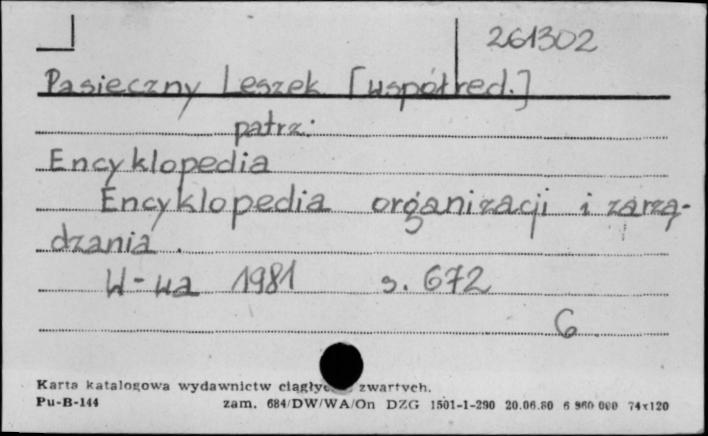 261302
Pasieczny Leszek [współred.]
patrz:
Encyklopedia
Encyklopedia organizacji i zarzą-
dzania.
W-wa 1981 s. 672
6
Karta katalogowa wydawnictw zwartych.
Pu-B-144 zam. 684/DW/WA/On DZG 1501-1-290 20.06.80 6 960 000 74x120